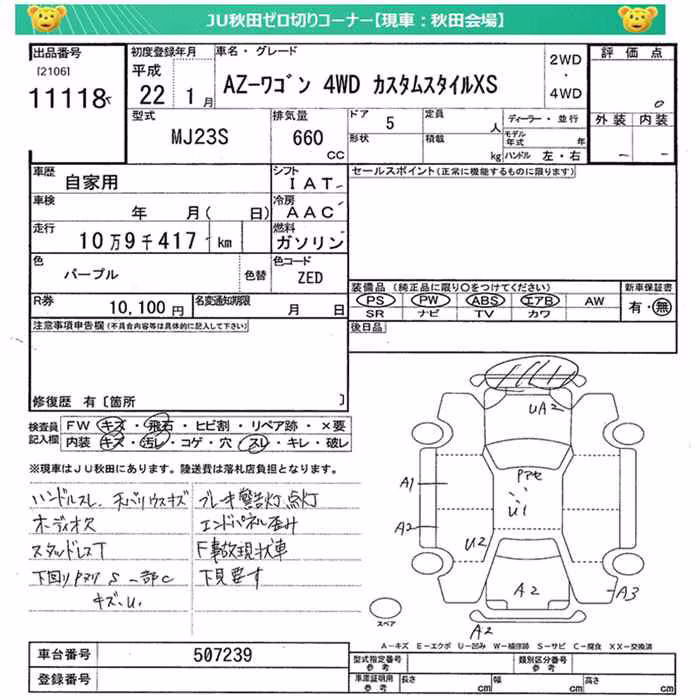 JU秋田ゼロ切りコーナー【現車：秋田会場】
出品番号 初度登録年月 車名・グレード 2WD・4WD 評価点
[2106] 平成
11118 22 1月 AZーワゴン 4WD カスタムスタイルXS 0
型式 排気量 ドア 5 定員 人 ディーラー・並行 外装 内装
MJ23S 660 CC 形状 積載 kg モデル年式 年 － －
ハンドル 左・右
車歴 自家用 シフト IAT セールスポイント(正常に機能するものに限ります)
車検 年 月( 日) 冷房 AAC
走行 10万9千417 km 燃料 ガソリン
色 パープル 色替 色コード ZED
装備品(純正品に限り○をつけてください) 新車保証書
PS PW ABS エアB AW 有・無
SR ナビ TV カワ
R券 10,100円 名変通知期限 月 日
後日品
注意事項申告欄(不具合内容等は具体的に記入して下さい)
修復歴 有〔箇所 〕
検査員記入欄 FW キズ・飛石・ヒビ割・リペア跡・×要
内装 キズ・汚レ・コゲ・穴・スレ・キレ・破レ
※現車はJU秋田にあります。陸送費は落札店負担となります。
ハンドルスレ、天バリウスキズ ブレーキ警告灯点灯
オーディオ欠 エンドパネル歪み
スタッドレスT F事故現状車
下回り S 一部C 下見要す
キズ、U.
UA2
アセ
U1
A1
A2
U2
A2
A3
A2
スペア
A－キズ E－エクボ U－凹み W－補修跡 S－サビ C－腐食 XX－交換済
車台番号 507239 型式指定番号 参考 類別区分番号 参考
登録番号 車庫証明用 参考 長さ cm 幅 cm 高さ cm